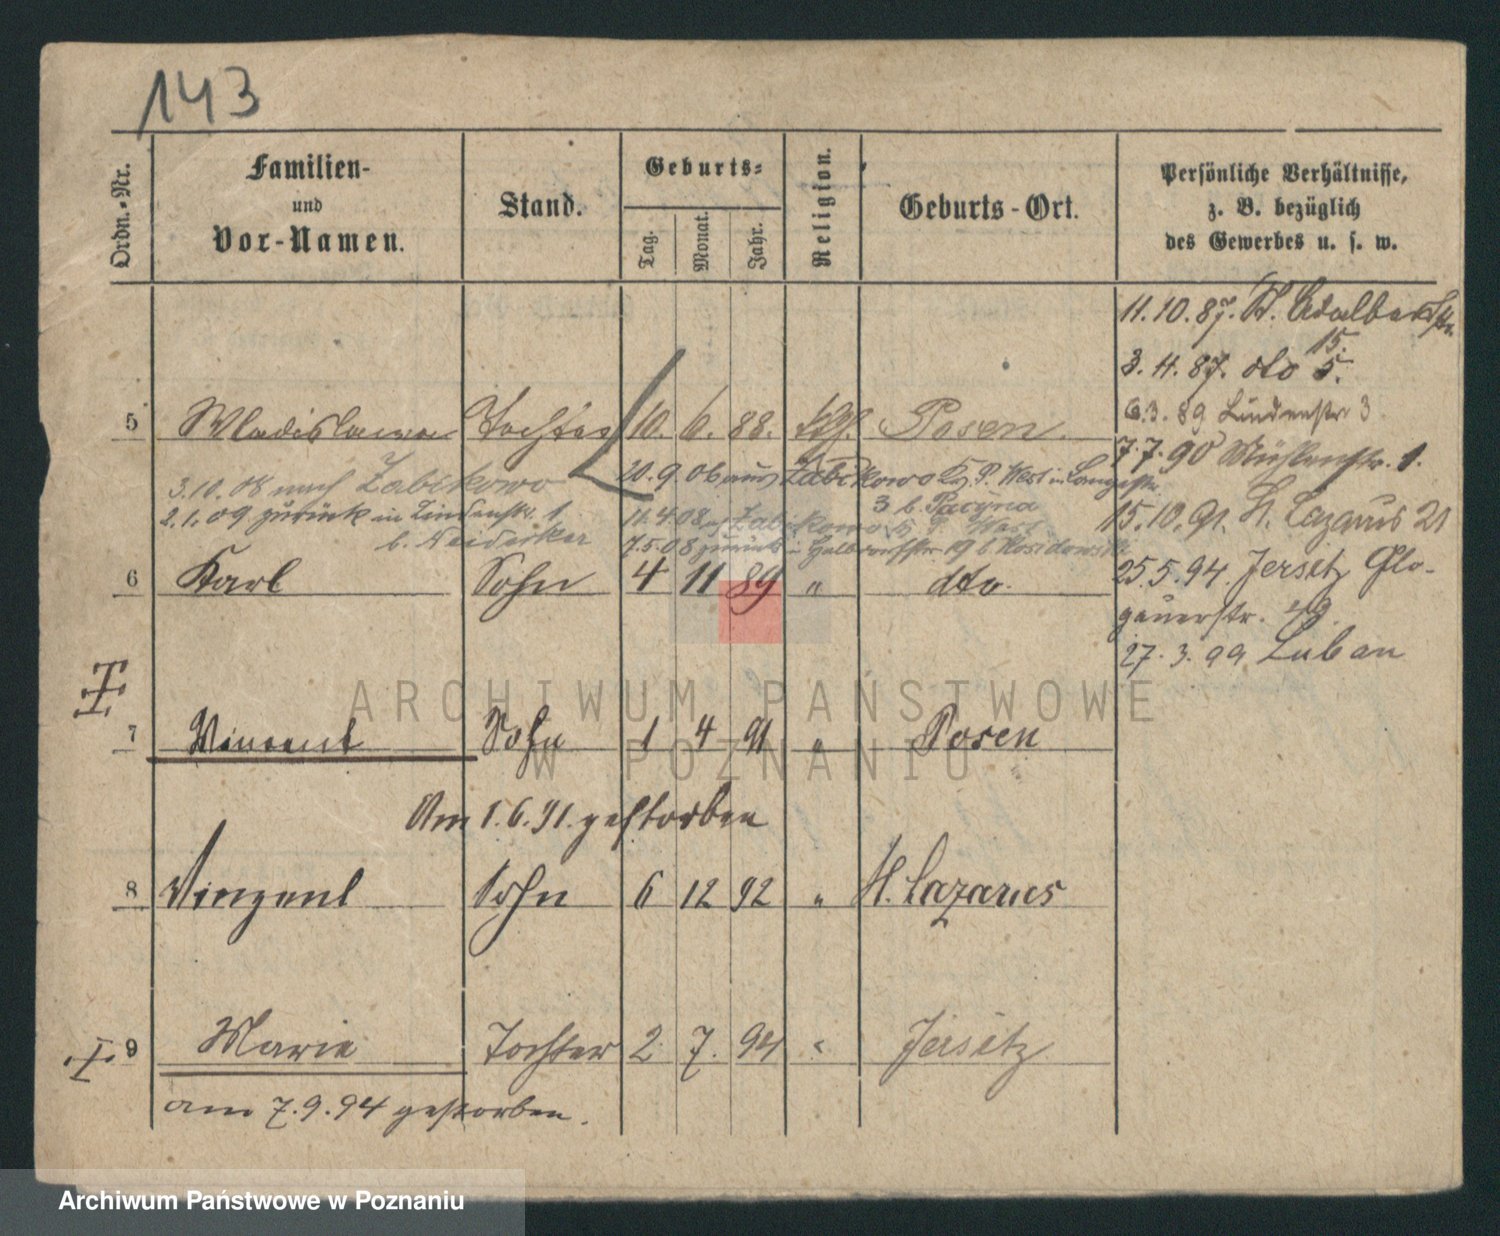 143
Ordn.-Nr.
Familien-
und
Vor-Namen.
Stand.
Geburts-
Tag.
Monat.
Jahr.
Religion.
Geburts-Ort.
Persönliche Verhältnisse,
z. B. bezüglich
des Gewerbes u. s. w.
11.10.87. St. Adalbertstr.
15.
3.11.87. dto 5.
6.3.89 Lindenstr 3
7.7.90 Mühlenstr. 1.
15.10.91. St. Lazarus 21
25.5.94. Jersitz Glo-
gauerstr. 49.
27.3.99 Luban
5 Wladislawa Tochter 10. 6. 88. kath. Posen.
3.10.08 nach Zabikowo
20.9.06 aus Zabikowo Kr. P. West in Langestr.
3 b. Pacyna
2.1.09 zurück in Lindenstr. 1
11.4.08 n. Zabikowo Kr. P. West
b. Neidecker
7.5.08 zurück in Halbdorfstr. 19 b
6 Karl Sohn 4 11 89 " dto.
7 Vincent Sohn 1 4 91 " Posen
Am 1.6.91. gestorben
8 Vinzent Sohn 6 12 92 " St. Lazarus
9 Marie Tochter 2 7. 94 " Jersitz
am 7.9.94 gestorben.
ARCHIWUM PAŃSTWOWE
W POZNANIU
Archiwum Państwowe w Poznaniu